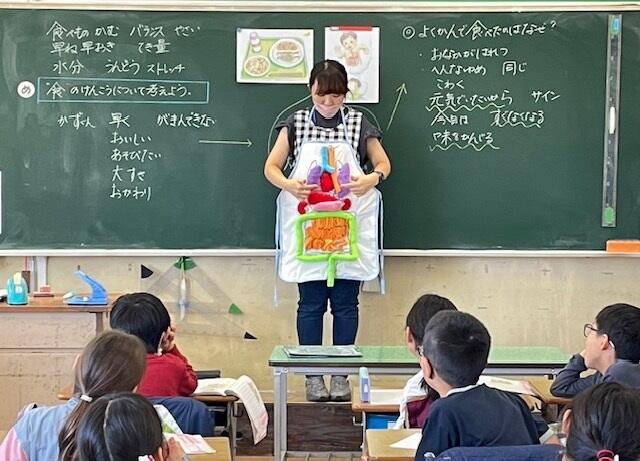 食べもの かむ バランス やさい
早ね早おき てき量
水分 うんどう ストレッチ
め 食のけんこうについて考えよう。
かずくん 早く がまんできない
おいしい
あそびたい
大すき
おかわり
◎よくかんで食べたのはなぜ?
・おなかがはれつ
同じ
こわく
元気でいたいから サイン
今日は
・味をかんじる